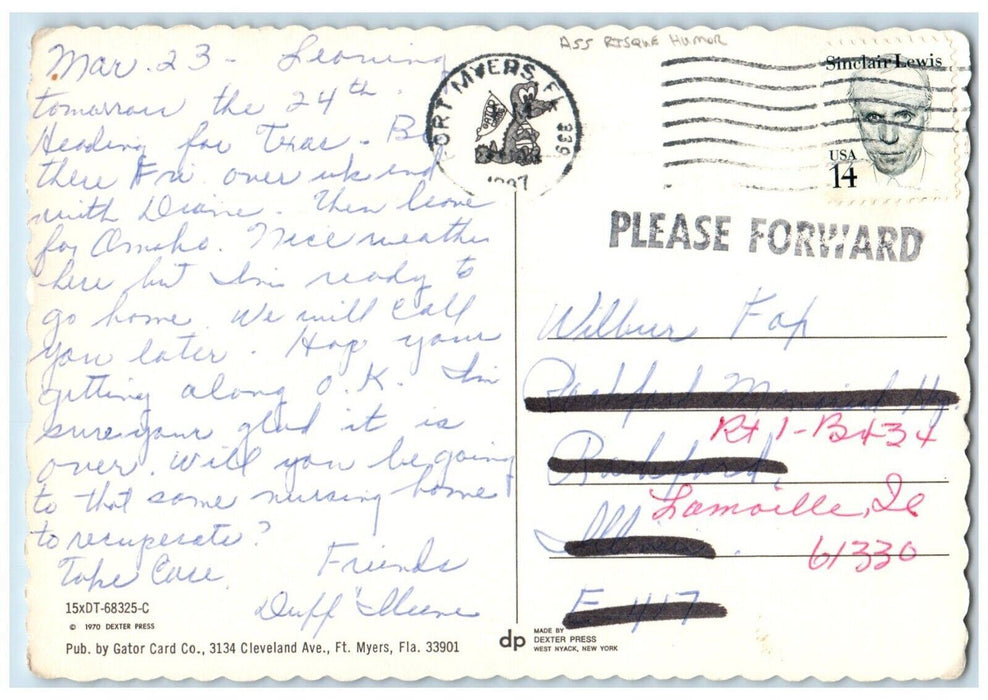 ASS RISQUE HUMOR
Mar. 23 - Leaving
tomorrow the 24th
Heading for Texas - Be
there Fri over wkend
with Diane. Then leave
for Omaha. Nice weather
here but I'm ready to
go home. We will call
you later. Hop your
getting along O.K. I'm
sure your glad it is
over. Will you be going
to that same nursing home
to recuperate?
Take Care.
Friends
Duff
15xDT-68325-C
© 1970 DEXTER PRESS
Pub. by Gator Card Co., 3134 Cleveland Ave., Ft. Myers, Fla. 33901
dp
MADE BY
DEXTER PRESS
WEST NYACK, NEW YORK
FORT MYERS, FL 339
Sinclair Lewis
USA
14
PLEASE FORWARD
Wilbur
Rockford Memorial
Rt 1-B434
Rockford,
Lamoille, Il
Ill
61330
E 417